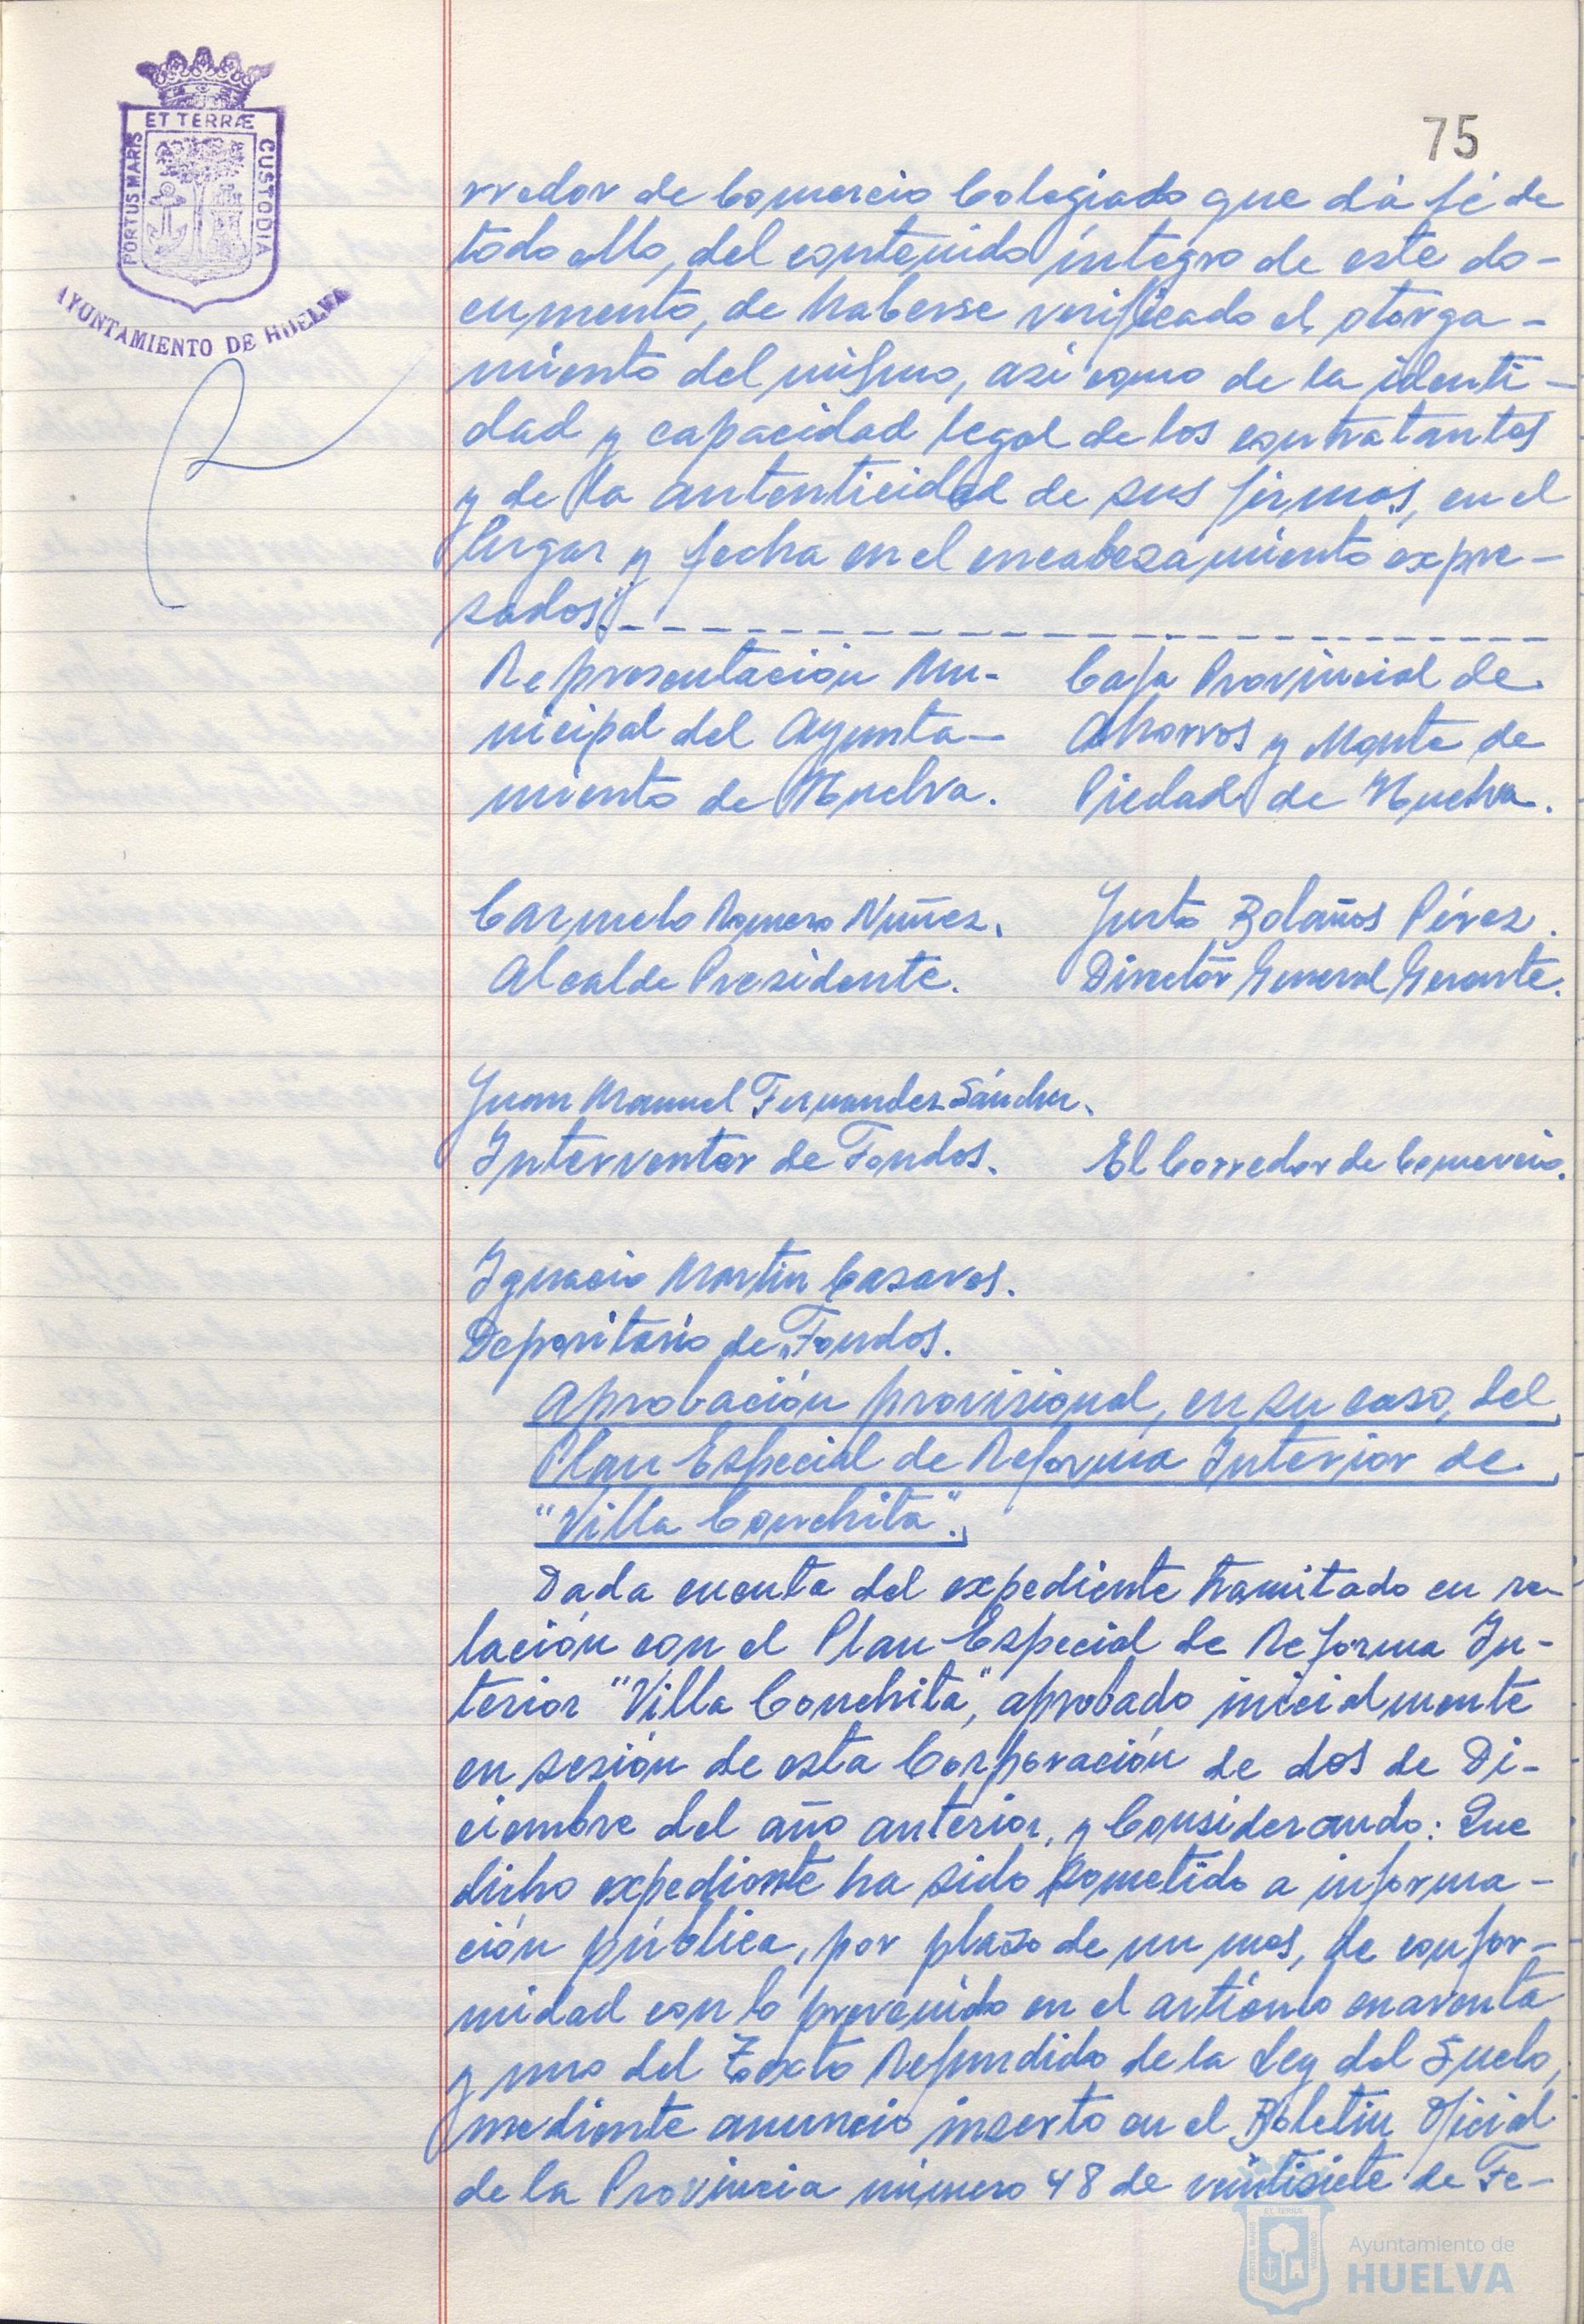 ET TERRÆ
PORTUS MARIS
CUSTODIA
AYUNTAMIENTO DE HUELVA
75
rredor de Comercio Colegiado que dá fé de
todo ello, del contenido íntegro de este do-
cumento, de haberse verificado el otorga-
miento del mismo, asi como de la identi-
dad y capacidad legal de los contratantes
y de la autenticidad de sus firmas, en el
lugar y fecha en el encabezamiento expre-
sados".
Representación Mu-
nicipal del Ayunta-
miento de Huelva.
Caja Provincial de
Ahorros y Monte de
Piedad de Huelva.
Carmelo Romero Nuñez.
Alcalde Presidente.
Justo Bolaños Pérez.
Director General Gerente.
Juan Manuel Fernandez Sánchez.
Interventor de Fondos.
El Corredor de Comercio.
Ignacio Martin Casares.
Depositario de Fondos.
Aprobación provisional, en su caso, del
Plan Especial de Reforma Interior de
"Villa Conchita".
Dada cuenta del expediente tramitado en re-
lación con el Plan Especial de Reforma In-
terior "Villa Conchita", aprobado inicialmente
en sesión de esta Corporación de dos de Di-
ciembre del año anterior, y Considerando: Que
dicho expediente ha sido sometido a informa-
ción pública, por plazo de un mes, de confor-
midad con lo prevenido en el artículo cuarenta
y uno del Texto Refundido de la Ley del Suelo,
mediante anuncio inserto en el Boletin Oficial
de la Provincia número 48 de veintisiete de Fe-
Ayuntamiento de
HUELVA